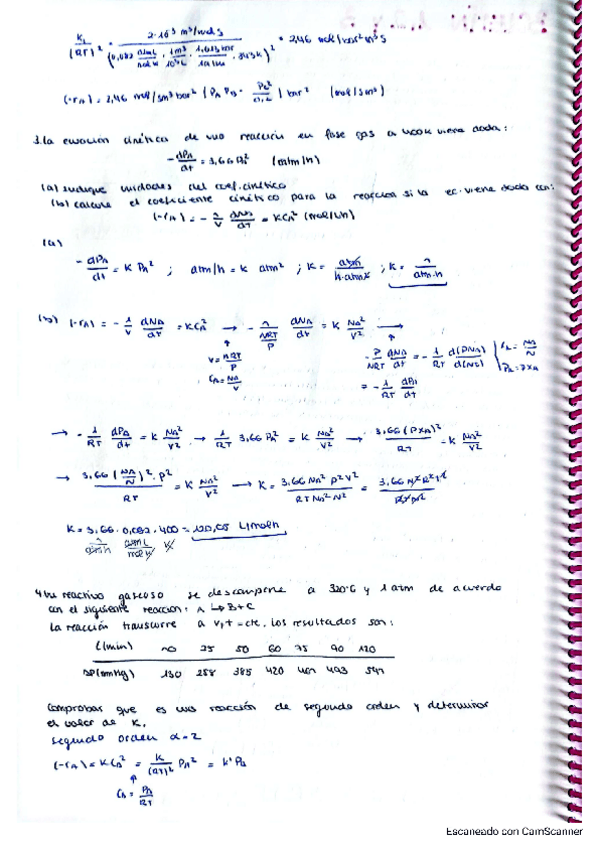 K₁/(RT)² = 2·10³ m³/mol s / (0,082 atm L/mol K · 1m³/10³L · 1,013 bar/1 atm · 343K)² = 2,46 mol/bar² m³ s
(-rA) = 2,46 mol/s m³ bar² (PA PB - PC²/0,2) bar² (mol/s m³)
3. La ecuación cinética de una reacción en fase gas a 400K viene dada:
-dPA/dt = 3,66 PA² (atm/h)
(a) indique unidades del coef. cinético
(b) calcule el coeficiente cinético para la reacción si la ec. viene dada con:
(-rA) = - 1/V dNA/dt = K CA² (mol/L h)
(a)
-dPA/dt = K PA² ; atm/h = K atm² ; K = atm/h·atm² ; K = 1/atm·h
(b) (-rA) = - 1/V dNA/dt = K CA² → - 1/(NRT/P) dNA/dt = K NA²/V² →
V = NRT/P
CA = NA/V
-P/NRT dNA/dt = - 1/RT d(PNA)/d(Nt)
PA = P XA
= - 1/RT dPA/dt
→ - 1/RT dPA/dt = K NA²/V² → 1/RT 3,66 PA² = K NA²/V² → 3,66 (P XA)²/RT = K NA²/V²
→ 3,66 (NA/N)² · P²/RT = K NA²/V² → K = 3,66 NA² P² V²/RT NA² N² = 3,66 N² R² T²
K = 3,66 · 0,082 · 400 = 120,05 L/mol h
1/atm h atm L/mol K K
4. Un reactivo gaseoso se descompone a 320ºC y 1 atm de acuerdo
con el siguiente reacción: A → B+C
La reacción transcurre a V, t = cte. Los resultados son:
t(min) 10 25 50 60 75 90 120
ΔP(mmHg) 130 258 385 420 461 493 541
Comprobar que es una reacción de segundo orden y determinar
el valor de K.
segundo orden α = 2
(-rA) = K CA² = K/(RT)² PA² = K' PA
CA = PA/RT
Escaneado con CamScanner